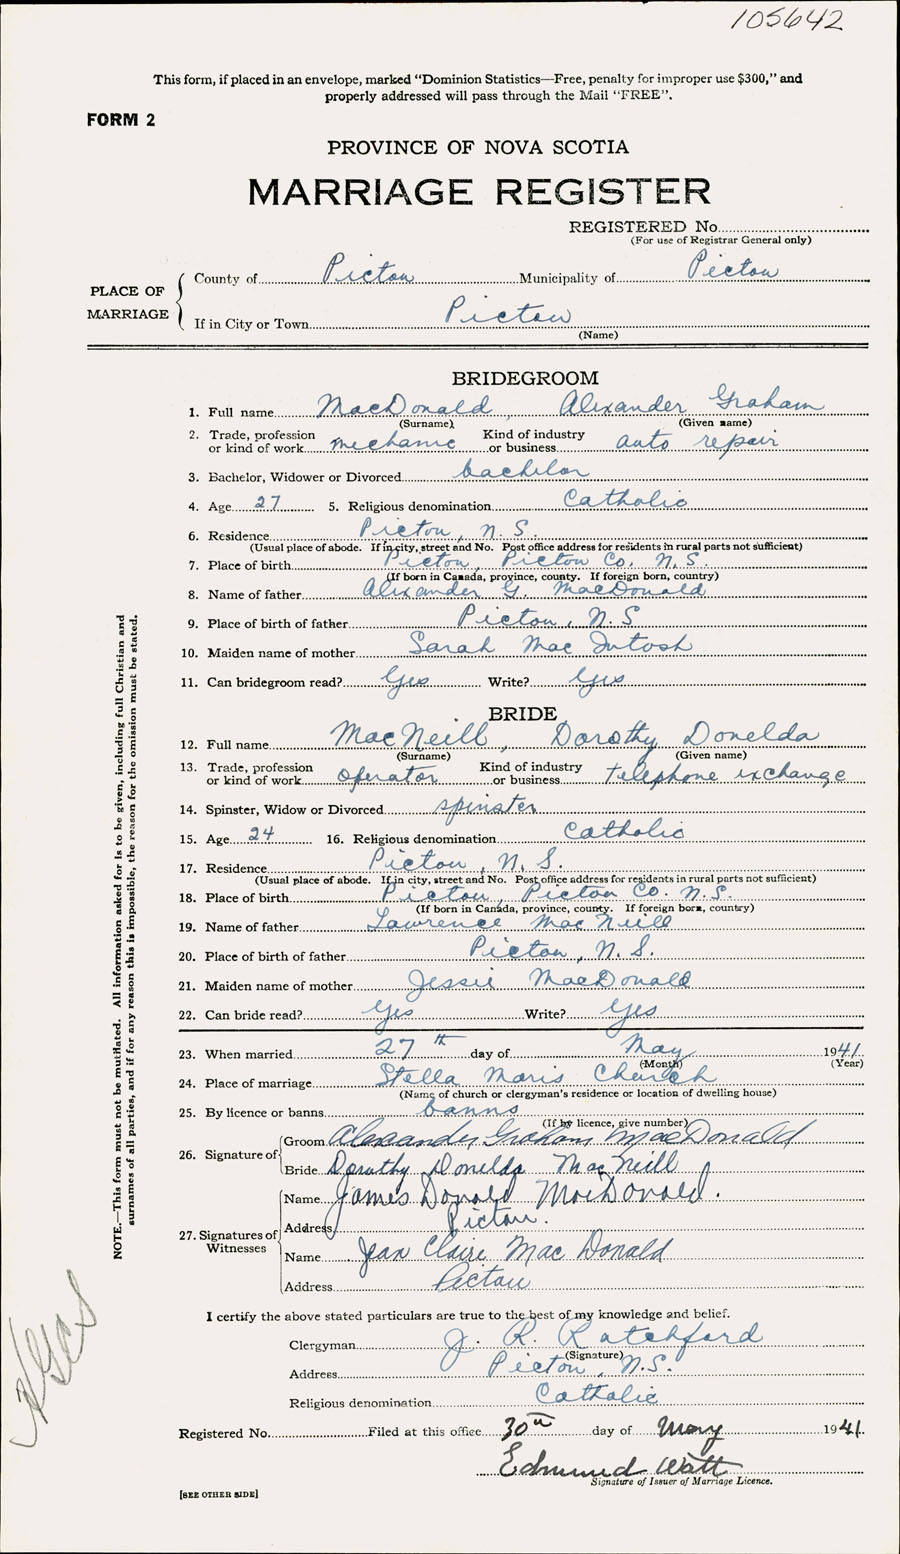 105642
This form, if placed in an envelope, marked "Dominion Statistics—Free, penalty for improper use $300," and
properly addressed will pass through the Mail "FREE".
FORM 2
PROVINCE OF NOVA SCOTIA
MARRIAGE REGISTER
REGISTERED No.
(For use of Registrar General only)
PLACE OF MARRIAGE
County of Pictou Municipality of Pictou
If in City or Town Pictou
(Name)
BRIDEGROOM
1. Full name MacDonald, Alexander Graham
(Surname) (Given name)
2. Trade, profession or kind of work mechanic Kind of industry or business auto repair
3. Bachelor, Widower or Divorced bachelor
4. Age 27 5. Religious denomination Catholic
6. Residence Pictou, N.S.
(Usual place of abode. If in city, street and No. Post office address for residents in rural parts not sufficient)
7. Place of birth Pictou, Pictou Co. N.S.
(If born in Canada, province, county. If foreign born, country)
8. Name of father Alexander G. MacDonald
9. Place of birth of father Pictou, N.S
10. Maiden name of mother Sarah MacIntosh
11. Can bridegroom read? Yes Write? Yes
BRIDE
12. Full name MacNeill, Dorothy Donelda
(Surname) (Given name)
13. Trade, profession or kind of work operator Kind of industry or business telephone exchange
14. Spinster, Widow or Divorced spinster
15. Age 24 16. Religious denomination Catholic
17. Residence Pictou, N.S.
(Usual place of abode. If in city, street and No. Post office address for residents in rural parts not sufficient)
18. Place of birth Pictou, Pictou Co. N.S.
(If born in Canada, province, county. If foreign born, country)
19. Name of father Lawrence MacNeill
20. Place of birth of father Pictou, N.S.
21. Maiden name of mother Jessie MacDonald
22. Can bride read? Yes Write? Yes
23. When married 27th day of May 1941
(Month) (Year)
24. Place of marriage Stella Maris Church
(Name of church or clergyman's residence or location of dwelling house)
25. By licence or banns banns
(If by licence, give number)
26. Signature of Groom Alexander Graham MacDonald
Bride Dorothy Donelda MacNeill
27. Signatures of Witnesses
Name James Donald MacDonald.
Address Pictou.
Name Jean Claire MacDonald
Address Pictou
I certify the above stated particulars are true to the best of my knowledge and belief.
Clergyman J. R. Ratchford
(Signature)
Address Pictou, N.S.
Religious denomination Catholic
Registered No. Filed at this office 30th day of May 1941.
Edmund Watt
Signature of Issuer of Marriage Licence.
[SEE OTHER SIDE]
NOTE.—This form must not be mutilated. All information asked for is to be given, including full Christian and
surnames of all parties, and if for any reason this is impossible, the reason for the omission must be stated.